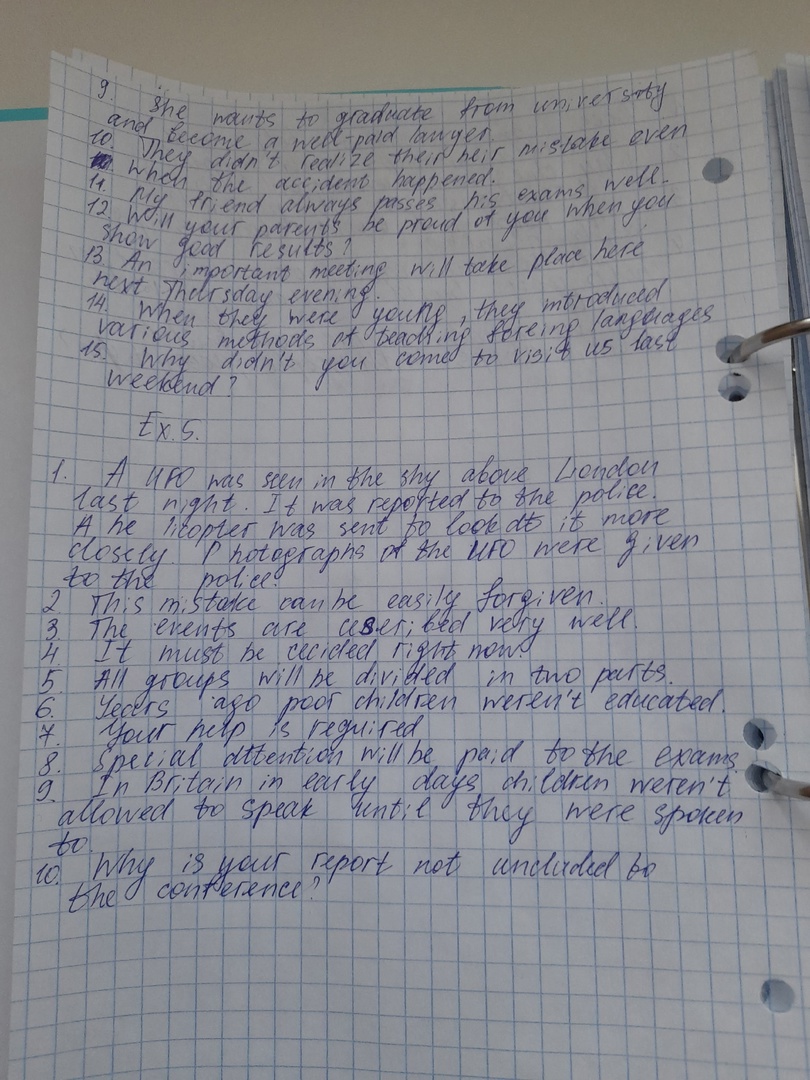 9. She wants to graduate from university
and become a well-paid lawyer
10. They didn't realize their heir mistake even
when the accident happened.
11. My friend always passes his exams well.
12. Will your parents be proud of you when you
show good results?
13. An important meeting will take place here
next Thursday evening.
14. When they were young, they introduced
various methods of teaching foreing languages
15. Why didn't you come to visit us last
weekend?
Ex. 5.
1. A UFO was seen in the sky above London
last night. It was reported to the police.
A helicopter was sent to look at it more
closely. Photographs of the UFO were given
to the police.
2. This mistake can be easily forgiven.
3. The events are described very well.
4. It must be decided right now.
5. All groups will be divided in two parts.
6. Years ago poor children weren't educated.
7. Your help is required
8. Special attention will be paid to the exams
9. In Britain in early days children weren't
allowed to speak until they were spoken
to.
10. Why is your report not uncluded to
the conference?